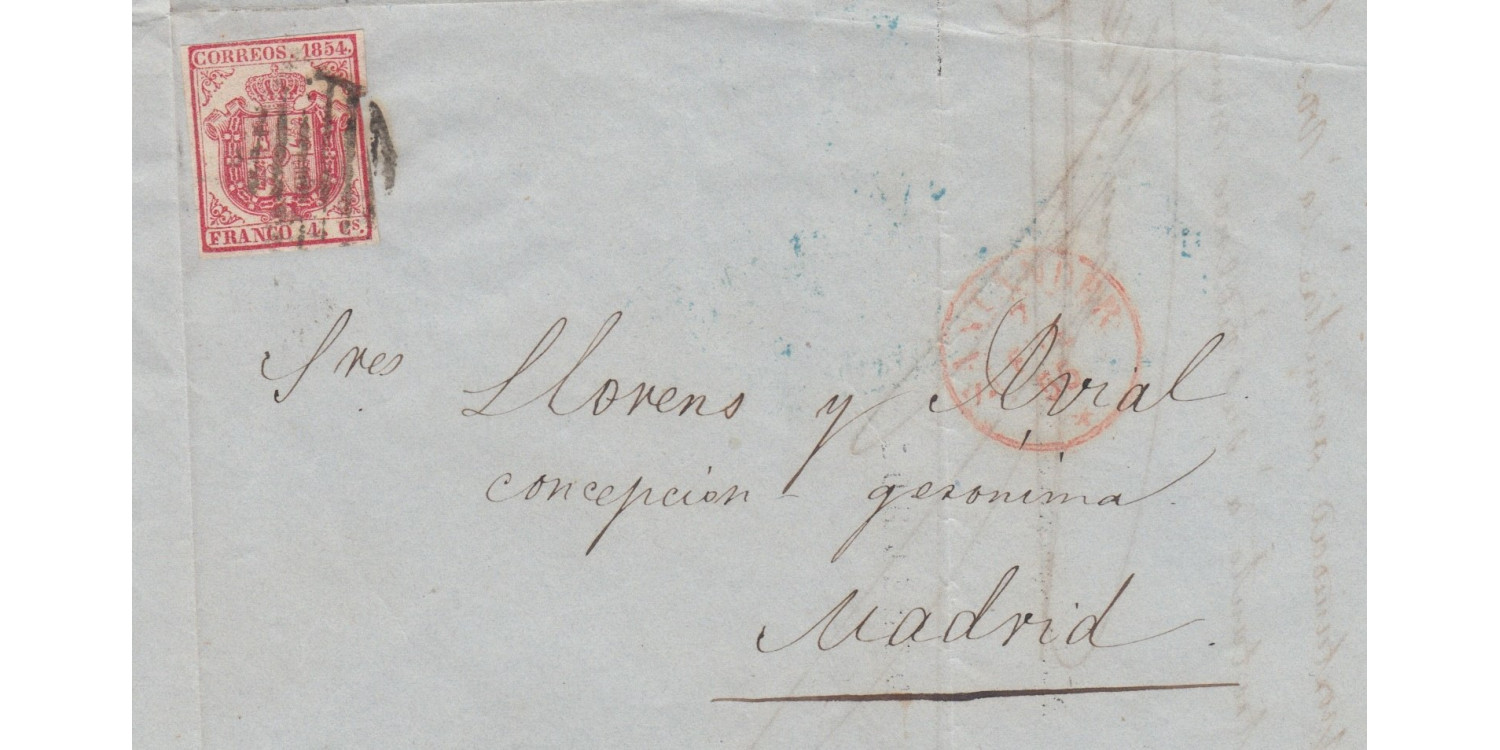 CORREOS. 1854.
FRANCO 4. Cs.
SANTANDER
Sres Llorens y Avial.
concepcion - geronima
Madrid.